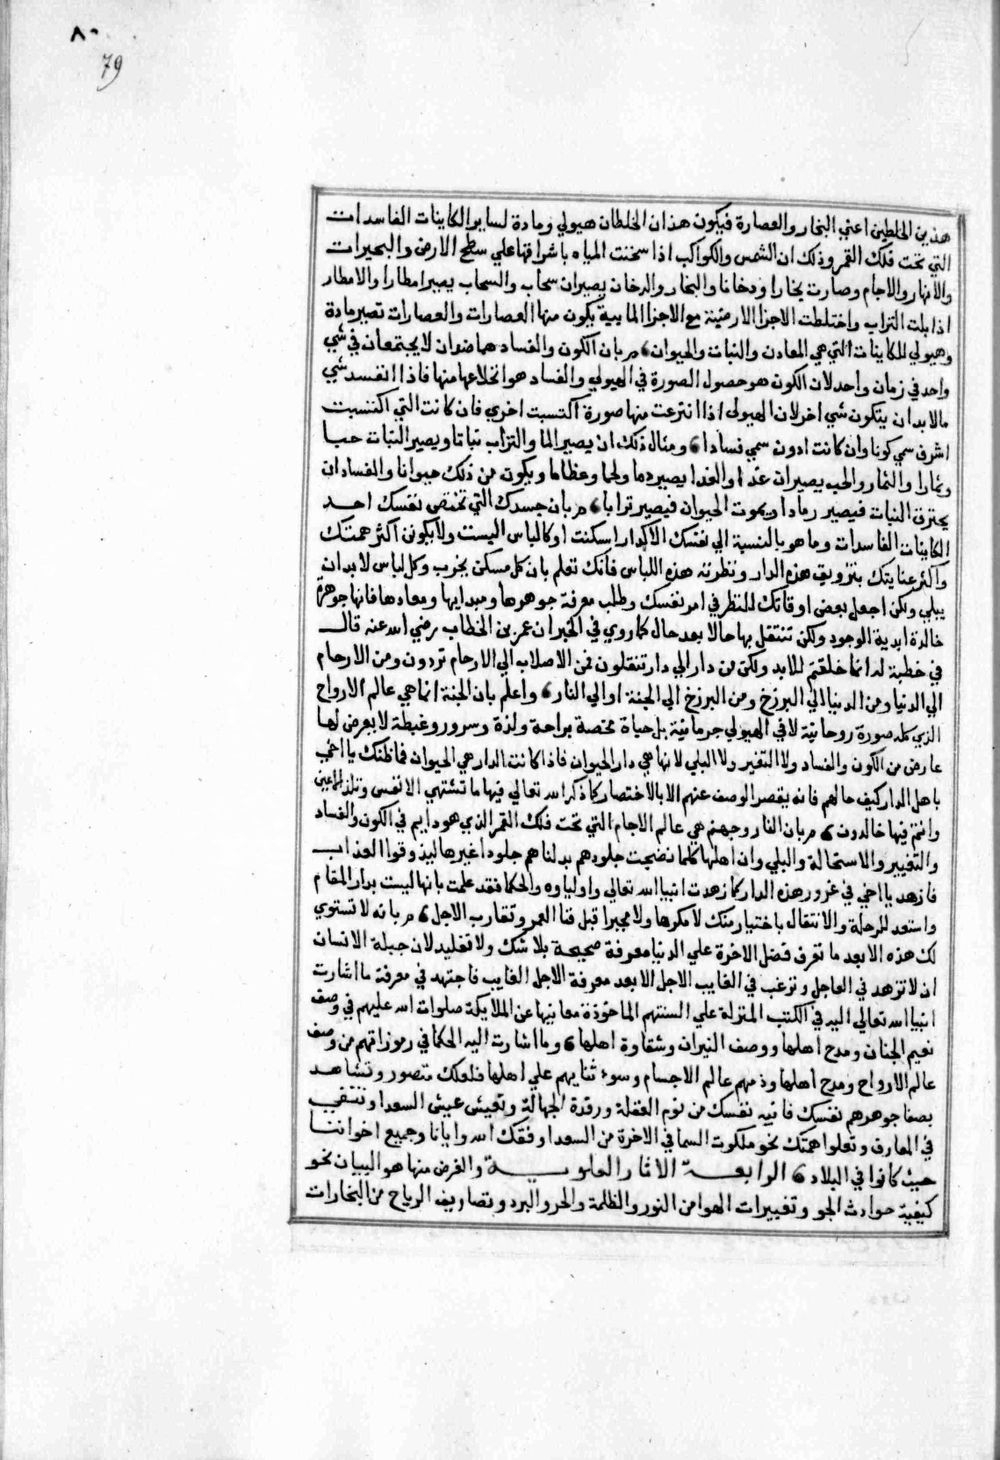 ٨٠
79
هذين الخلطين اعني البخار والعصارة فيكون هذان الخلطان هيولي ومادة لساير الكاينات الفاسدات
التي تحت فلك القمر وذلك ان الشمس والكواكب اذا سخنت المياه باشراقها علي سطح الارض والبحيرات
والانهار والاجام وصارت بخارا ودخانا والبخار والدخان يصيران سحاب والسحاب يصير امطارا والامطار
اذا بلت التراب واختلطت الاجزا الارضية مع الاجزا المايية يكون منها العصارات والعصارات تصير مادة
وهيولي للكاينات التي هي المعادن والنبات والحيوان ۵ م بان الكون والفساد هما ضدان لا يجتمعان في شي
واحد في زمان واحد لان الكون هو حصول الصورة في الهيولي والفساد هو انخلاعها منها فاذا انفسد شي
مالا بد ان يتكون شي اخر لان الهيولي اذا انترعت منها صورة اكتسبت اخري فان كانت التي اكتسبت
اشرف سمي كونا وان كانت ادون سمي فسادا ۵ ومثال ذلك ان يصير الما والتراب نباتا ويصير النبات حبا
وثمارا والثمار والحب يصيران غذا والغذا يصير دما ولحما وعظاما ويكون من ذلك حيوانا والفساد ان
يحترق النبات فيصير رمادا ويموت الحيوان فيصير ترابا ۵ م بان جسدك التي تختص نفسك احد
الكاينات الفاسدات وما هو بالنسبة الي نفسك الا كدار اسكنت او كالباس البست ولا يكونن اكثر همتك
واكثر عنايتك بتزويق هذه الدار ونظرته هذه اللباس فانك تعلم بان كل مسكن يخرب وكل لباس لابد ان
يبلي ولكن اجعل بعض اوقاتك للنظر في امر نفسك وطلب معرفة جوهرها ومبدايها ومعادها فانها جوهرة
خالدة ابدية الوجود ولكن تنتقل بها حالا بعد حال كما روي في الخبر ان عمر بن الخطاب رضي الله عنه قال
في خطبة له انما خلقتم للابد ولكن من دار الي دار تنقلون فمن الاصلاب الي الارحام تردون ومن الارحام
الي الدنيا ومن الدنيا الي البرزخ ومن البرزخ الي الجنة او الي النار ۵ واعلم بان الجنة انما هي عالم الارواح
الذي كله صورة روحانية لا في الهيولي جرمانية بل حياة محضة براحة ولذة وسرور وغبطة لا يعرض لها
عارض من الكون والفساد ولا التغير ولا البلي لانها هي دار الحيوان فاذا كانت الدار هي الحيوان فما ظنك يا اخي
باهل الدار كيف حالهم فانه يقصر الوصف عنهم الا بالاختصار كما ذكر الله تعالي فيها ما تشتهي الانفس وتلذ الاعين
وانتم فيها خالدون ۵ م بان النار وجهنم هي عالم الاجام التي تحت فلك القمر الذي هو دايم في الكون والفساد
والتغيير والاستحالة والبلي وان اهلها كلما نضجت جلودهم بدلناهم جلودا غيرها ليذوقوا العذاب
فازهد يا اخي في غرور هذه الدار كما زهدت انبيا الله تعالي واولياوه والحكما فقد علمت بانها ليست بدار المقام
واستعد للرحلة والانتقال باختيار منك لا مكرها ولا مجبرا قبل فنا العمر وتقارب الاجل ۵ م بانه لا تستوي
لك هذه الا بعد ما تعرف فضل الاخرة علي الدنيا معرفة صحيحة بلا شك ولا تقليد لان جبلة الانسان
ان لا تزهد في العاجل وترغب في الغايب الاجل الا بعد معرفة الاجل الغايب فاجتهد في معرفة ما اشارت
انبيا الله تعالي اليه في الكتب المنزلة علي السنتهم الماخوذة معانيها عن الملايكة صلوات الله عليهم في وصف
نعيم الجنان ومدح اهلها ووصف النيران وشقاوة اهلها ۵ وما اشارت اليه الحكما في رموزاتهم من وصف
عالم الارواح ومدح اهلها وذمهم عالم الاجسام وسوء ثنايهم علي اهلها فلعلك تتصور وتشاهد
بصفا جوهرهم نفسك فانبه نفسك من نوم الغفلة ورقدة الجهالة وتعيش عيش السعدا وترتقي
في المعارف وتعلوا همتك نحو ملكوت السما في الاخرة من السعدا وفقك الله وايانا وجميع اخواننا
حيث كانوا في البلاد ۵ الرابعة الاثار العلوية والغرض منها هو البيان نحو
كيفية حوادث الجو وتغييرات الهوا من النور والظلمة والحر والبرد وتصاريف الرياح من البخارات